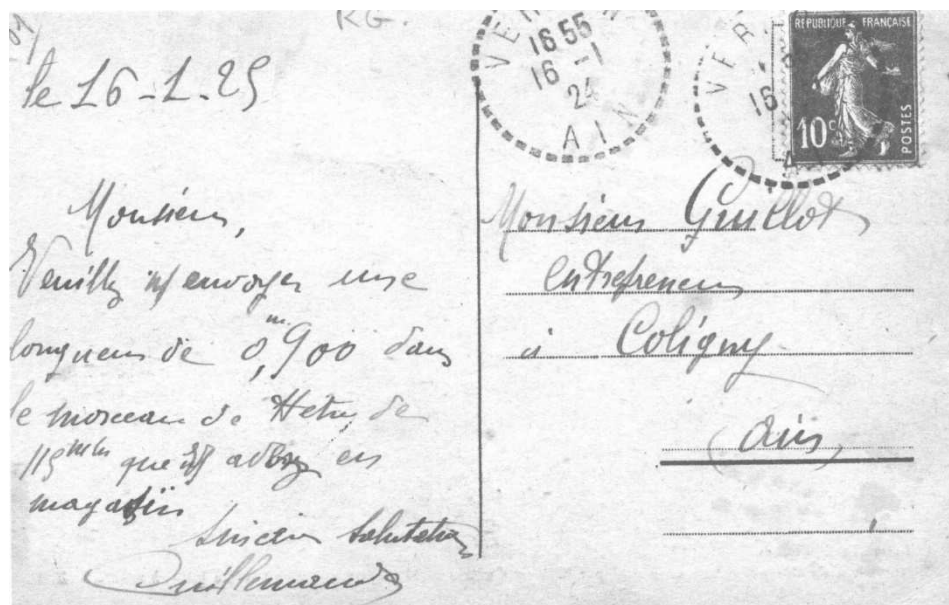 R.G.
le 16-1-25
Monsieur,
Veuillez m'envoyer une
longueur de 0,m900 dans
le morceau de Hetre de
115mm que
magasin
Sincères Salutations
Guillemaud
16 55
16 -1
24
AIN
16
REPUBLIQUE FRANÇAISE
10c
POSTES
Monsieur Guillot
entrepreneur
à Coligny
(Ain)